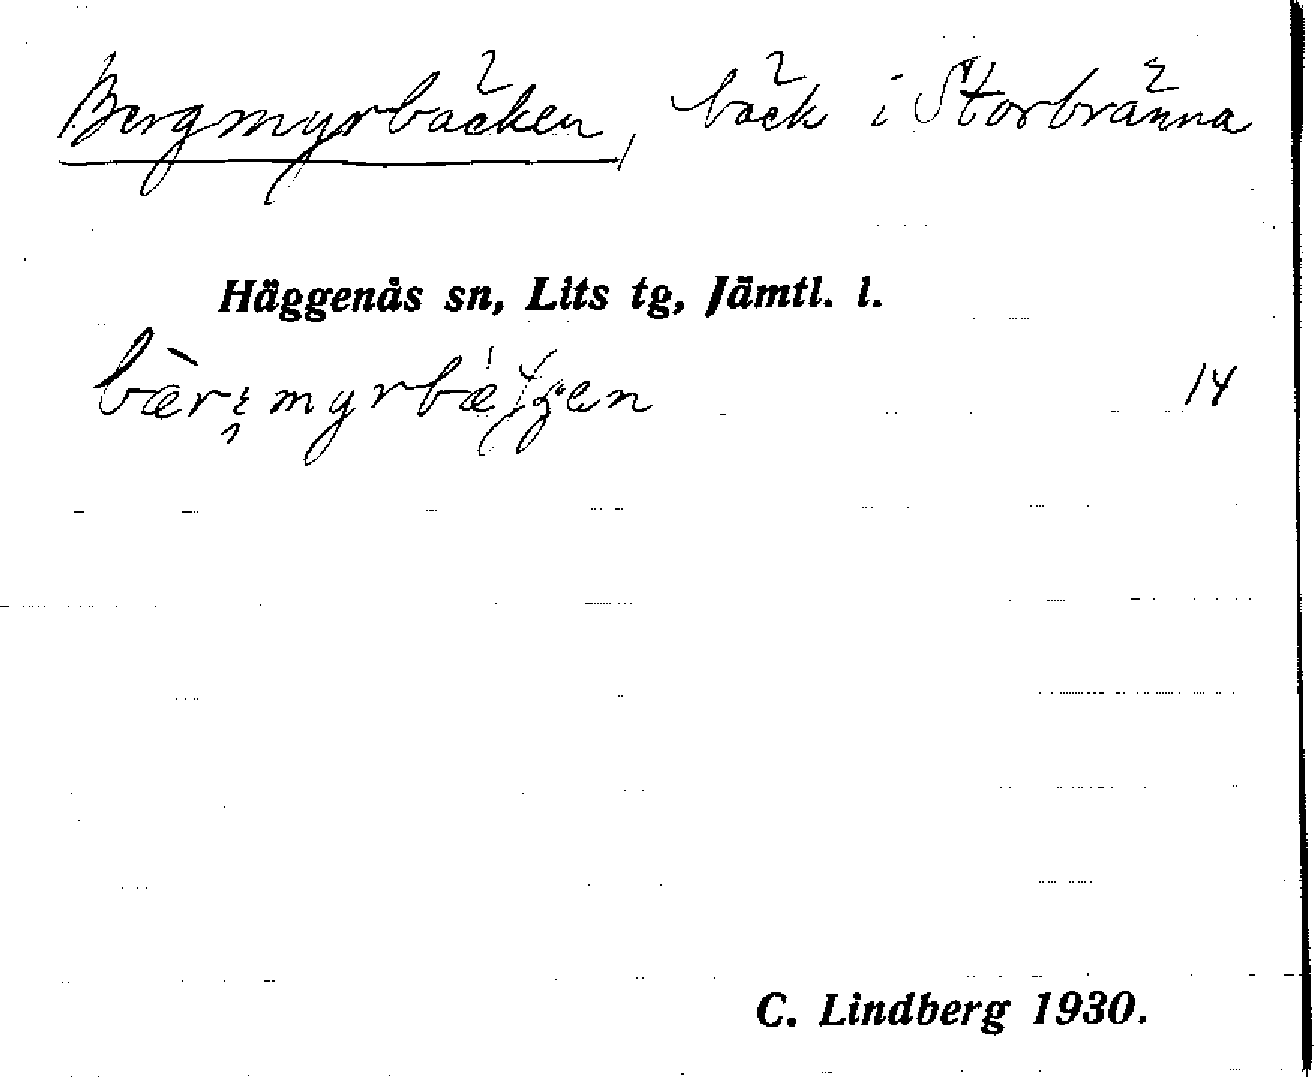 Bergmyrbäcken, bäck i Storbränna
Häggenås sn, Lits tg, Jämtl. l.
14
C. Lindberg 1930.